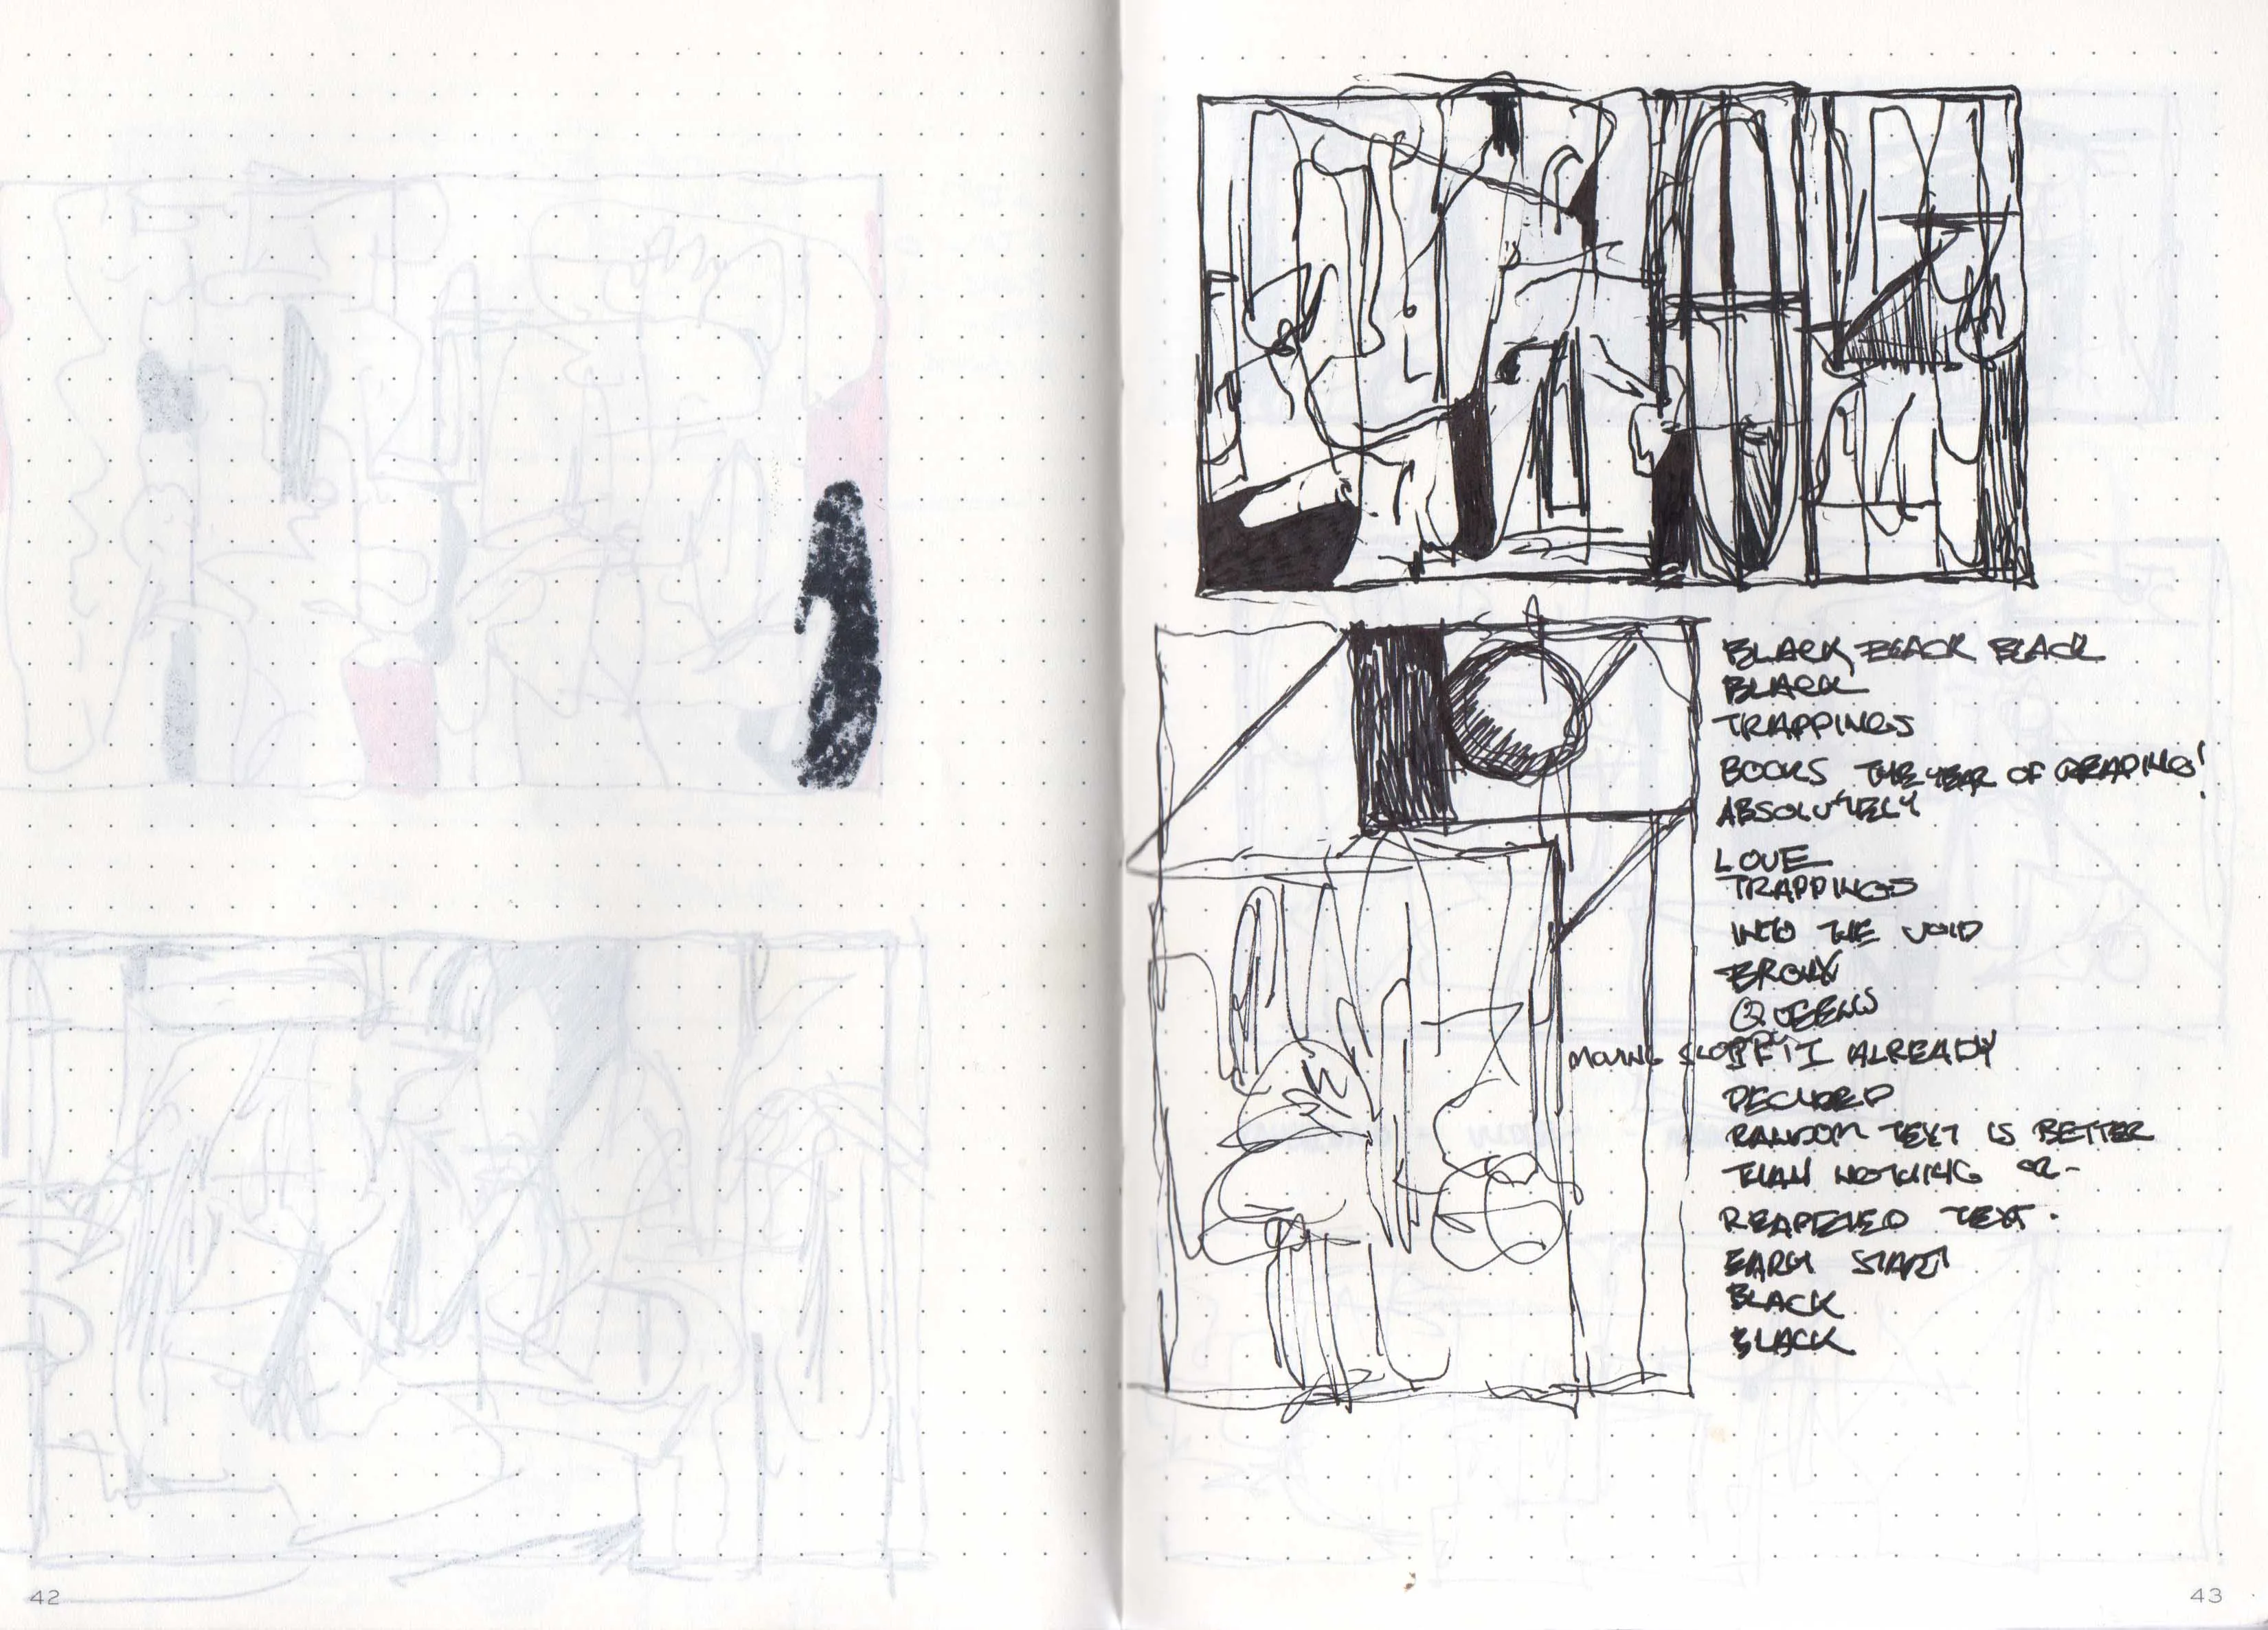 BLACK BLACK BLACK
BLACK
TRAPPINGS
BOOKS THE YEAR OF READING!
ABSOLUTELY
LOVE
TRAPPINGS
INTO THE VOID
BRONX
QUEENS
MOVING SLOW IF I ALREADY
RANDOM TEXT IS BETTER
THAN NOTHING OR
TEXT.
EARLY START
BLACK
BLACK
42
43